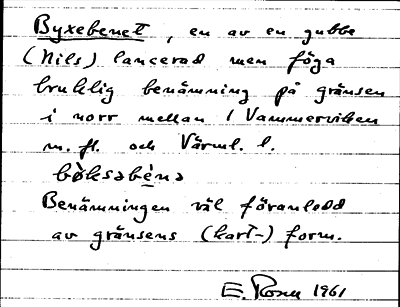 Byxebenet, en av en gubbe
(Nils) lancerad men föga
bruklig benämning på gränsen
i norr mellan / Vammerviken
m. fl. och Värml. l.
bø̀ksəbèːnə
Benämningen väl föranledd
av gränsens (kart-) form.
E. Rosen 1961